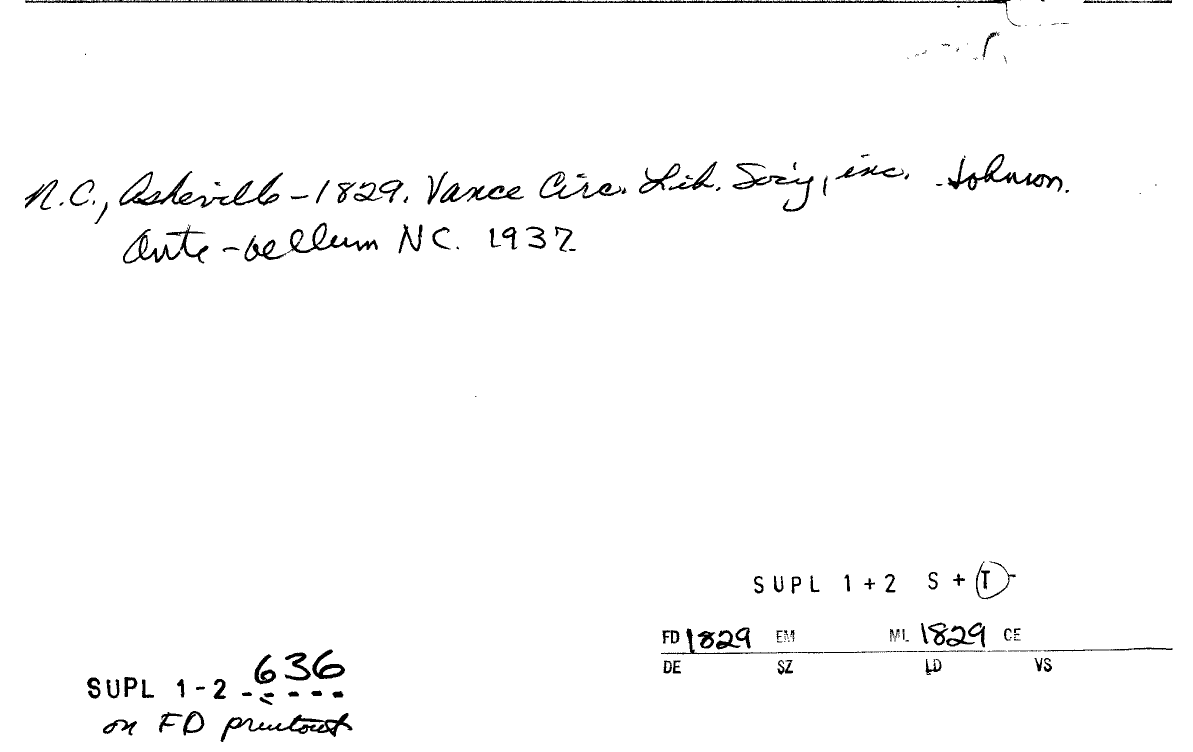 N.C., Asheville - 1829. Vance Circ. Lib. Soc'y, inc. Johnson.
Ante-bellum NC. 1937
SUPL 1+2 S + T
FD 1829 EM ML 1829 CE
DE SZ LD VS
SUPL 1-2 - 636
on FD printout